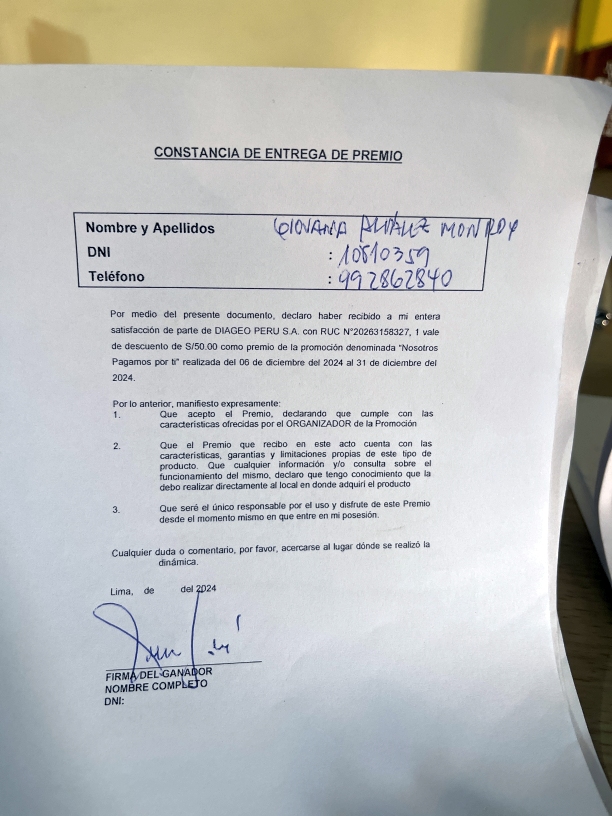 CONSTANCIA DE ENTREGA DE PREMIO
Nombre y Apellidos GIOVANA MONROY
DNI : 10810359
Teléfono : 992862840
Por medio del presente documento, declaro haber recibido a mi entera
satisfacción de parte de DIAGEO PERU S.A. con RUC N°20263158327, 1 vale
de descuento de S/50.00 como premio de la promoción denominada "Nosotros
Pagamos por ti" realizada del 06 de diciembre del 2024 al 31 de diciembre del
2024.
Por lo anterior, manifiesto expresamente:
1. Que acepto el Premio, declarando que cumple con las
características ofrecidas por el ORGANIZADOR de la Promoción
2. Que el Premio que recibo en este acto cuenta con las
características, garantías y limitaciones propias de este tipo de
producto. Que cualquier información y/o consulta sobre el
funcionamiento del mismo, declaro que tengo conocimiento que la
debo realizar directamente al local en donde adquirí el producto
3. Que seré el único responsable por el uso y disfrute de este Premio
desde el momento mismo en que entre en mi posesión.
Cualquier duda o comentario, por favor, acercarse al lugar dónde se realizó la
dinámica.
Lima, de del 2024
FIRMA DEL GANADOR
NOMBRE COMPLETO
DNI: